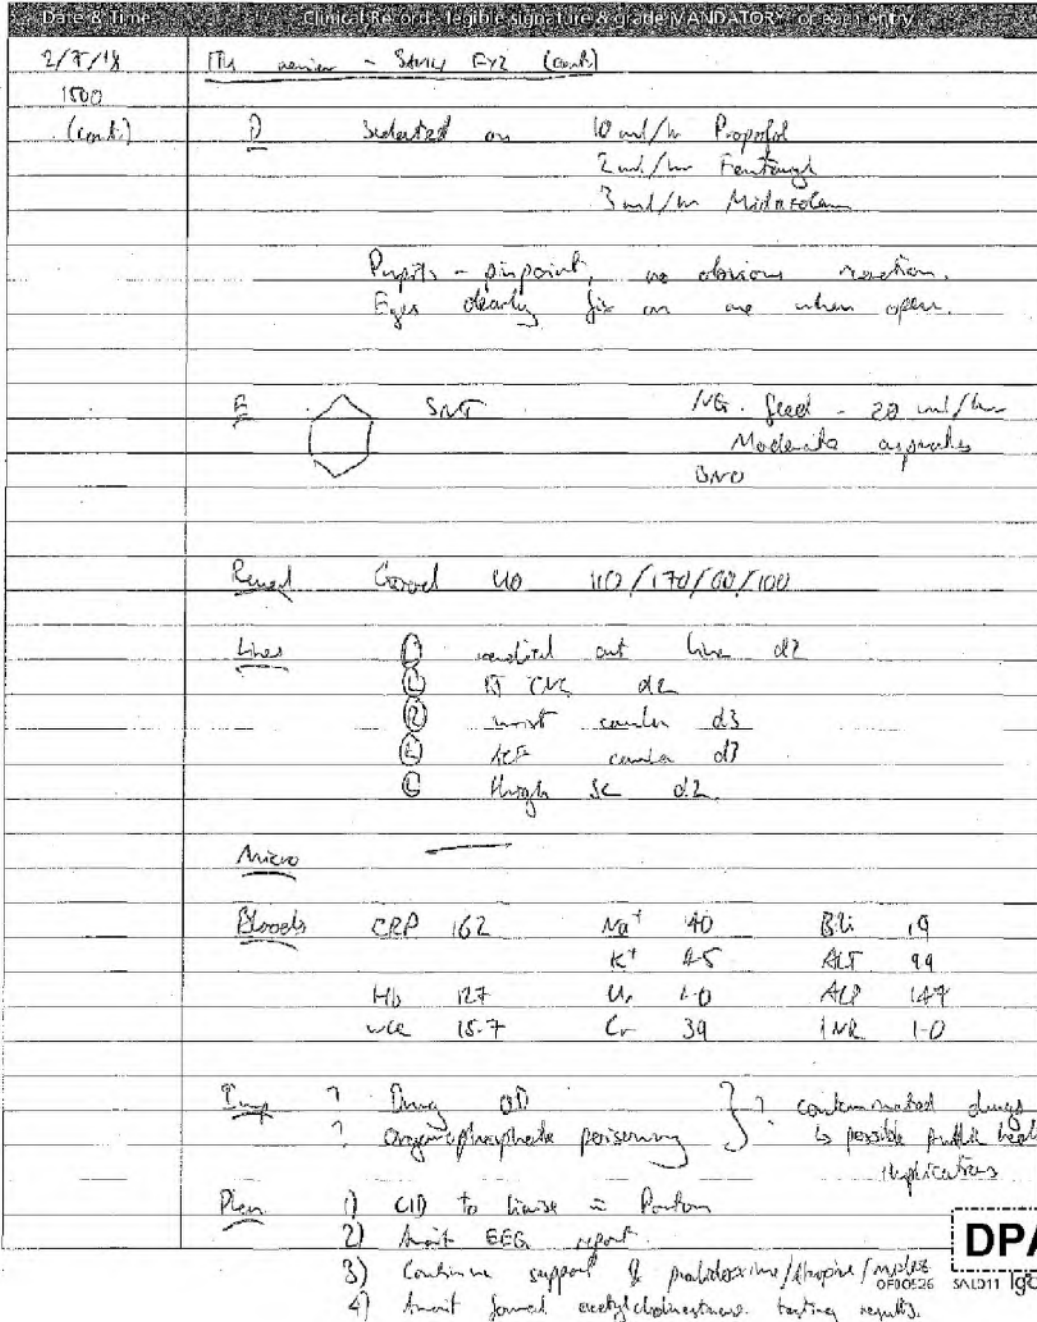 Date & Time Clinical Record - legible signature & grade MANDATORY for each entry
2/7/18 ITU review - FY2 (cont.)
1500
(cont.) D Sedated on 10 ml/hr Propofol
2 ml/hr Fentanyl
3 ml/hr Midazolam
Pupils - pinpoint, no obvious reaction.
Eyes clearly fix on me when open.
E SNT NG. feed - 20 ml/hr
Moderate aspirates
BNO
Renal Good UO 110/170/60/100
Lines art line d2
CVC d2
R wrist cannula d3
ACF cannula d3
L thigh SC d2
Micro
Bloods CRP 162 Na+ 140 Bili 19
K+ 4.5 ALT 99
Hb 127 Ur ALP 147
WCC 15.7 Cr 39 INR 1.0
Imp ? Drug OD } ? contaminated drugs
? Organophosphate poisoning ↳ possible public health
implications
Plan 1) CID to liaise c̄ Porton
2) Await EEG report.
3) Continue support & pralidoxime/atropine/
OF00526 SAL011
DPA
4) Await formal acetylcholinesterase testing results.